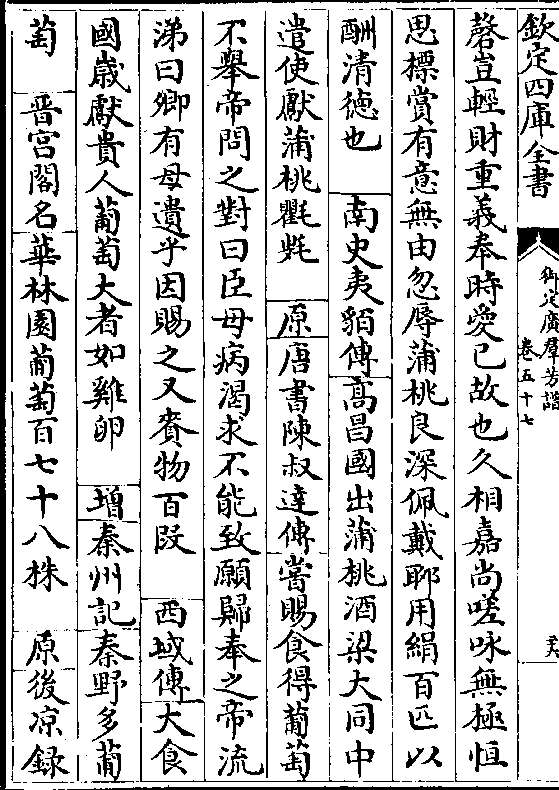 欽定四庫全書
御定廣羣芳譜
卷五十七
罄豈輕財重義奉時愛己故也久相嘉尚嗟咏無極恒
思標賞有意無由忽辱蒲桃良深佩戴耶用絹百匹以
酬清德也 南史夷貊傳高昌國出蒲桃酒梁大同中
遣使獻蒲桃氍毹 原唐書陳叔達傳嘗賜食得葡萄
不舉帝問之對曰臣母病渴求不能致願歸奉之帝流
涕曰卿有母遺乎因賜之又賚物百段 西域傳大食
國歲獻貴人葡萄大者如雞卵 增秦州記秦野多葡
萄 晉宫閣名華林園葡萄百七十八株 原後凉録